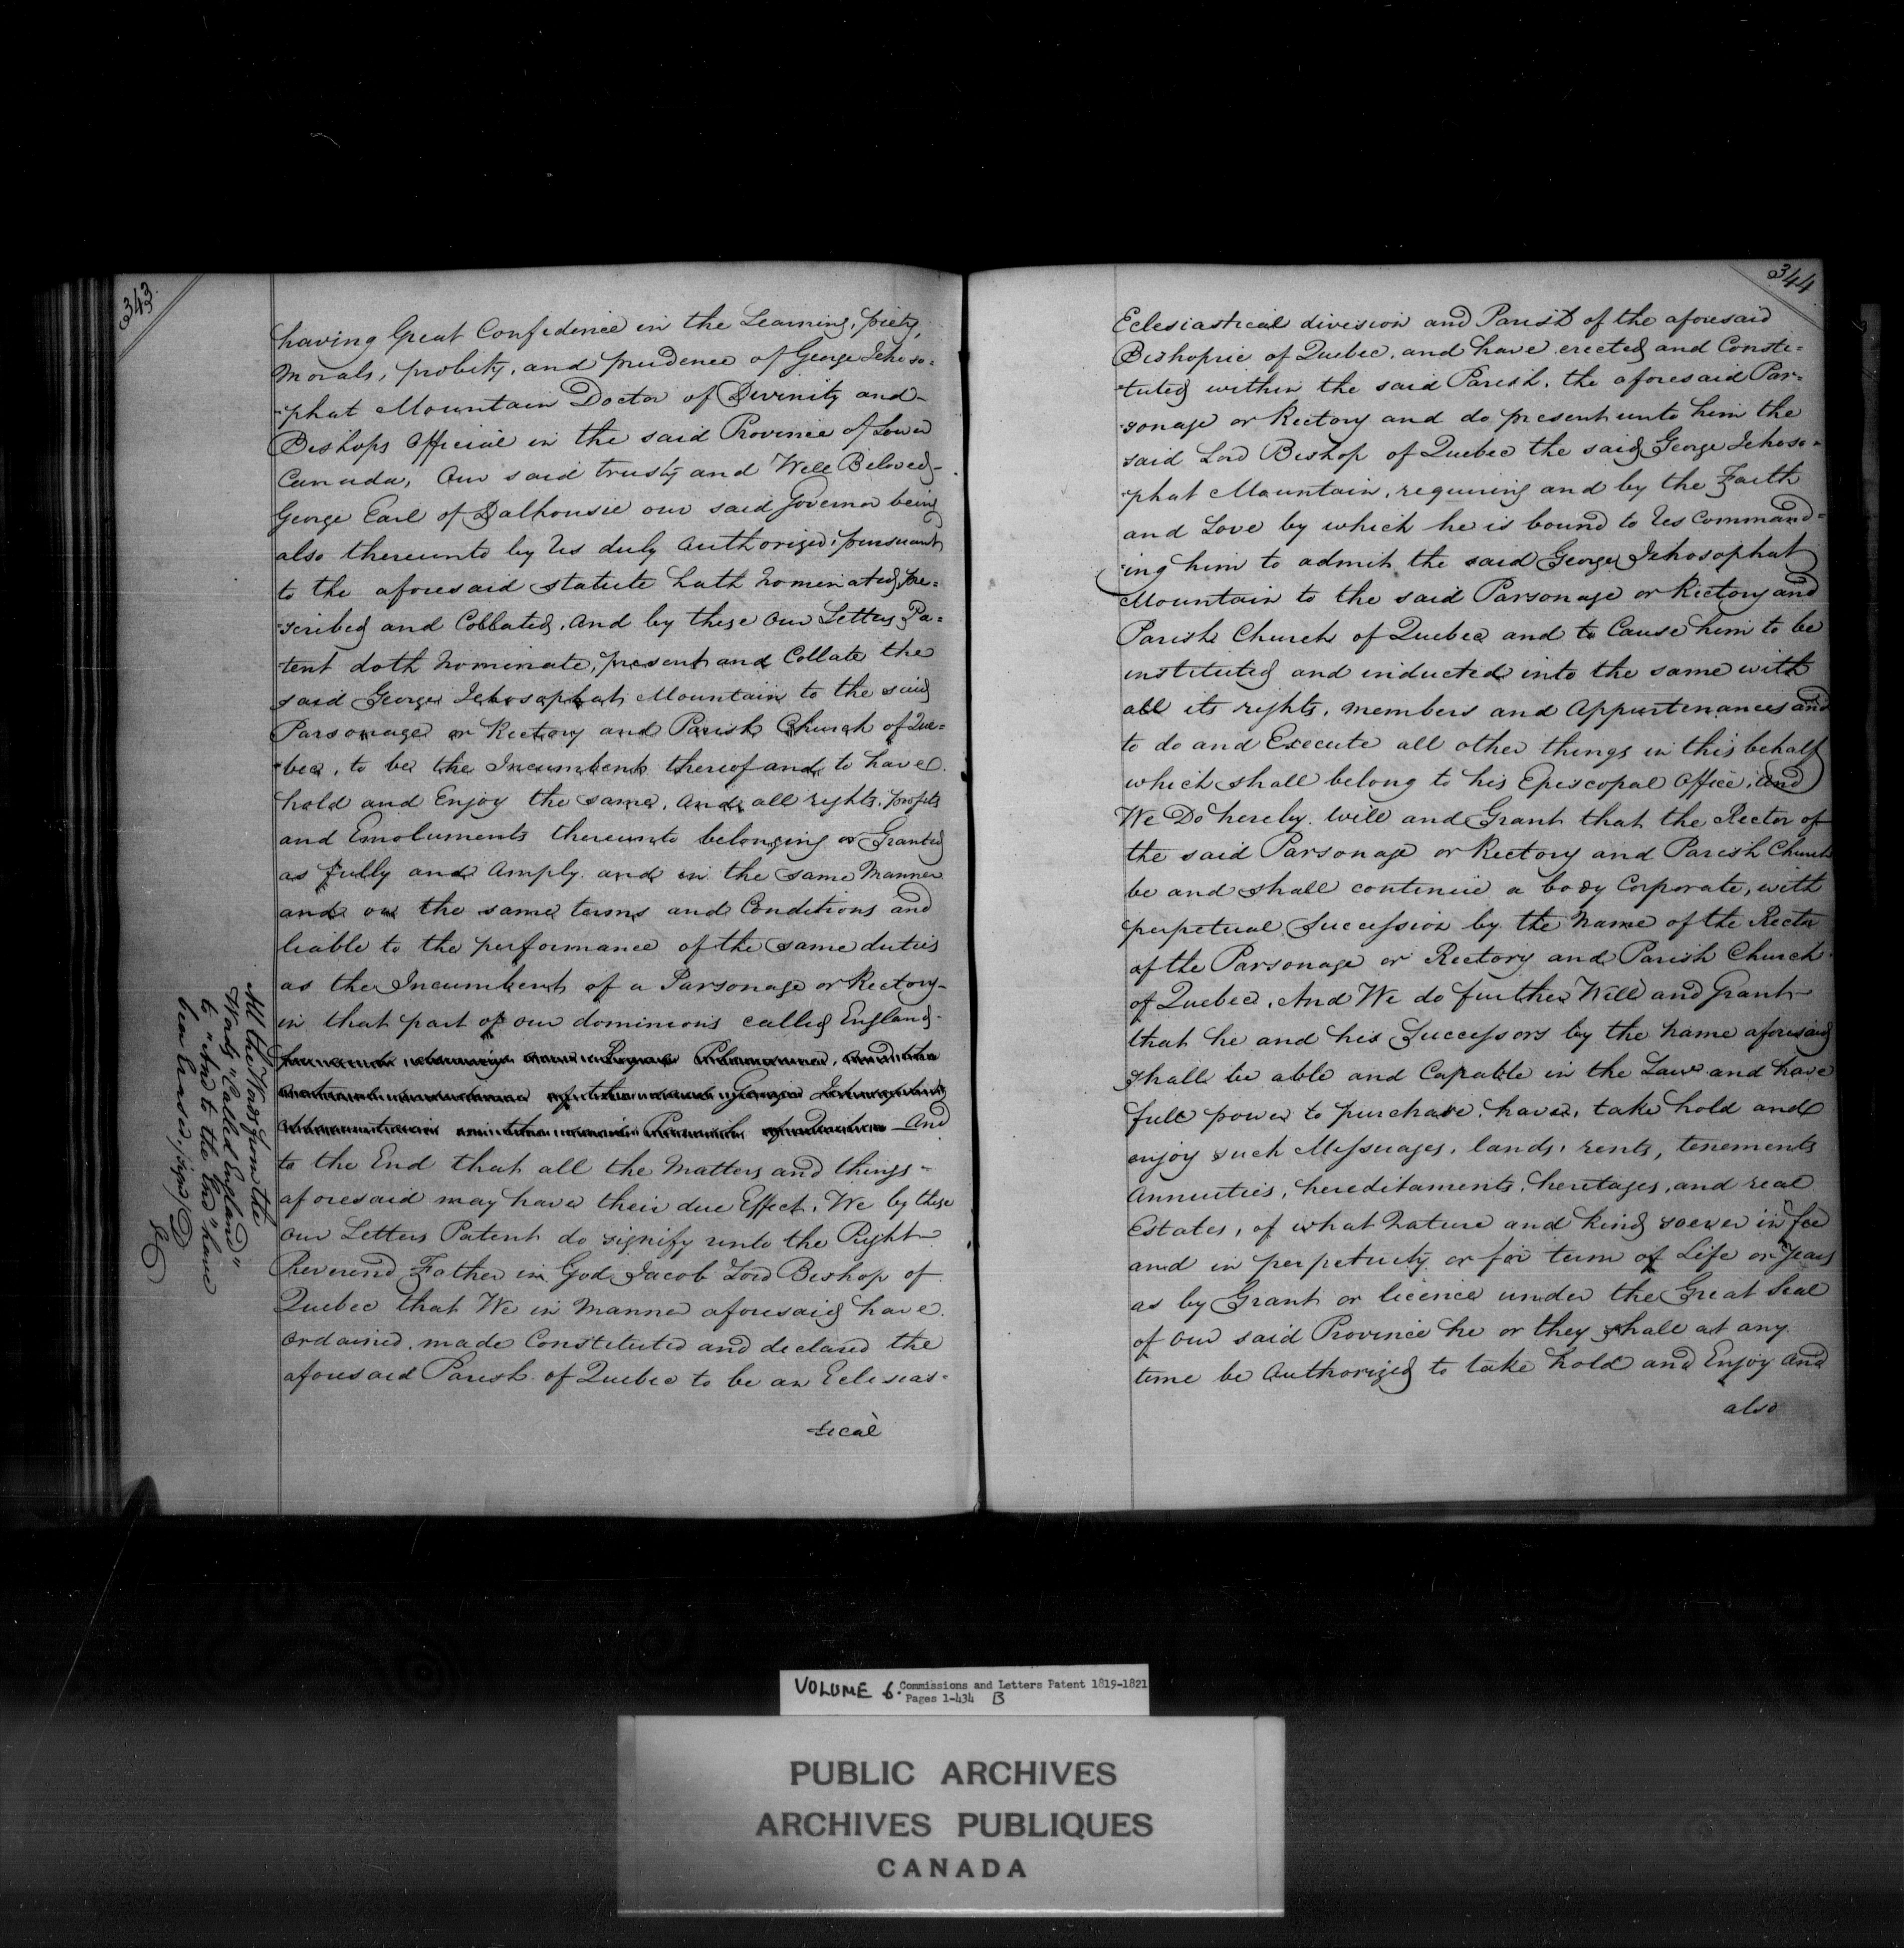 343
having Great Confidence in the Learning, piety,
Morals, probity, and prudence of George Jehoso=
"phat Mountain Doctor of Divinity and
Bishops Official in the said Province of Lower
Canada, Our said trusty and Well Beloved
George Earl of Dalhousie our said Governor being
also thereunto by Us duly Authorized, pursuant
to the aforesaid Statute hath Nominated, pre=
"scribed and Collated, And by these Our Letters Pa=
"tent doth Nominate, present and Collate the
said George Jehosaphat Mountain to the said
Parsonage or Rectory and Parish Church of Que=
"bec, to be the Incumbent thereof and to have
hold and Enjoy the same, And all rights, profits
and Emoluments thereunto belonging or Granted
as fully and Amply and in the same Manner
and on the same terms and Conditions and
liable to the performance of the same duties
as the Incumbent of a Parsonage or Rectory
in that part of our dominions called England
George
Parish And
to the End that all the Matters and things
aforesaid may have their due Effect, We by these
Our Letters Patent do signify unto the Right
Reverend Father in God Jacob Lord Bishop of
Quebec that We in Manner aforesaid have
Ordained, made Constituted and declared the
aforesaid Parish of Quebec to be an Eclesias=
tical
All the Words from the
Words "Called England"
to "And to the End" have
been Erased, signed D
344
Eclesiastical division and Parish of the aforesaid
Bishopric of Quebec, and have erected and Consti=
"tuted within the said Parish, the aforesaid Par=
"sonage or Rectory and do present unto him the
said Lord Bishop of Quebec the said George Jehoso=
"phat Mountain, requiring and by the Faith
and Love by which he is bound to Us Command=
"ing him to admit the said George Jehosophat
Mountain to the said Parsonage or Rectory and
Parish Church of Quebec and to Cause him to be
instituted and inducted into the same with
all its rights, Members and Appurtenances and
to do and Execute all other things in this behalf
which shall belong to his Episcopal Office, And
We Do hereby Will and Grant that the Rector of
the said Parsonage or Rectory and Parish Church
be and shall continue a body Corporate, with
perpetual Succession by the Name of the Rector
of the Parsonage or Rectory and Parish Church
of Quebec, And We do further Will and Grant
that he and his Successors by the Name aforesaid
shall be able and Capable in the Law and have
full power to purchase, have, take hold and
enjoy such Messuages, lands, rents, tenements
Annuities, hereditaments, heritages, and real
Estates, of what Nature and kind soever in fee
and in perpetuity or for term of Life or Years
as by Grant or licence under the Great Seal
of Our said Province he or they shall at any
time be Authorized to take hold and Enjoy And
also
VOLUME 6. Commissions and Letters Patent 1819-1821
Pages 1-434 B
PUBLIC ARCHIVES
ARCHIVES PUBLIQUES
CANADA